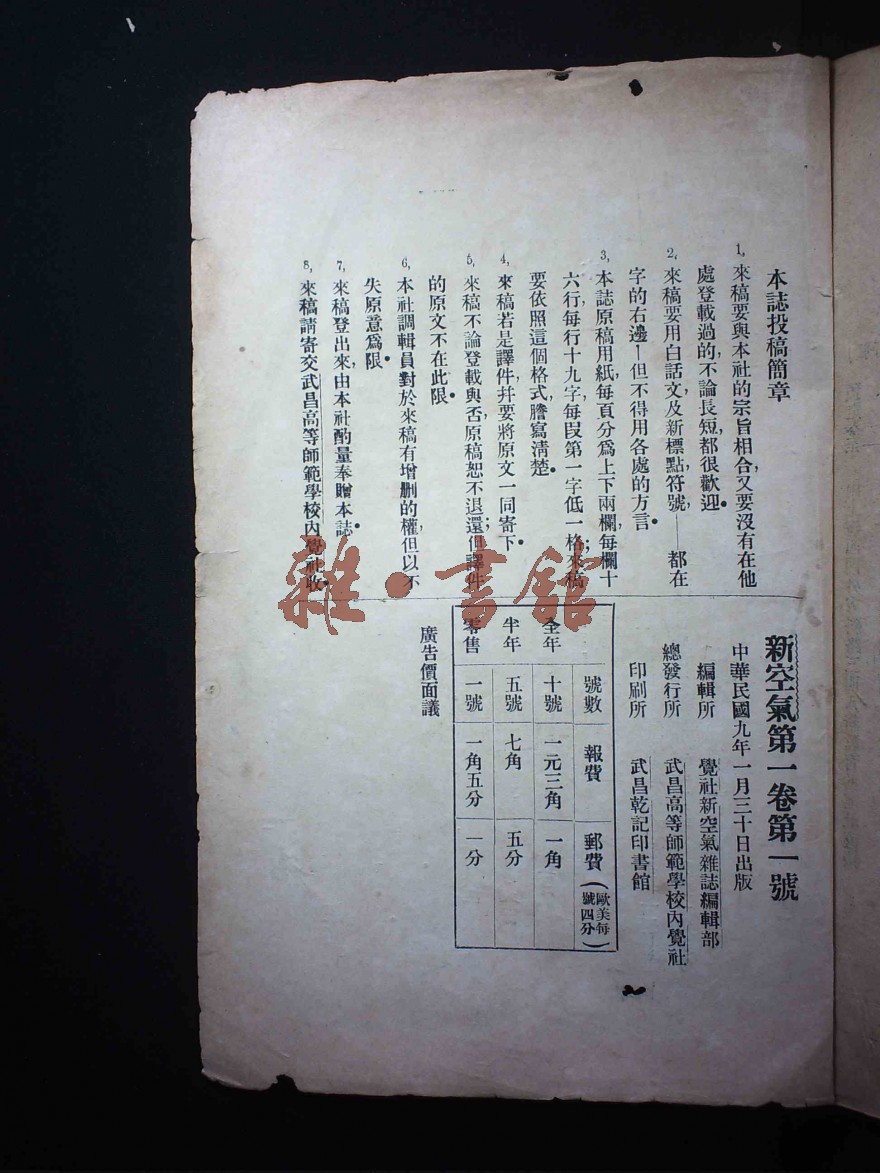 本誌投稿簡章
1, 來稿要與本社的宗旨相合,又要沒有在他
處登載過的,不論長短,都很歡迎。
2, 來稿要用白話文及新標點符號——都在
字的右邊—但不得用各處的方言。
3, 本誌原稿用紙每頁分爲上下兩欄,每欄十
六行,每行十九字,每段第一字低一格;來稿
要依照這個格式,謄寫淸楚。
4, 來稿若是譯件,幷要將原文一同寄下。
5, 來稿不論登載與否,原稿恕不退還;但譯件
的原文不在此限。
6, 本社調輯員對於來稿有增删的權,但以不
失原意爲限。
7, 來稿登出來,由本社酌量奉贈本誌。
8, 來稿請寄交武昌高等師範學校內覺社收。
新空氣第一卷第一號
中華民國九年一月三十日出版
編輯所 覺社新空氣雜誌編輯部
總發行所 武昌高等師範學校內覺社
印刷所 武昌乾記印書館
號數 報費 郵費(歐美每號四分)
全年 十號 一元三角 一角
半年 五號 七角 五分
零售 一號 一角五分 一分
廣告價面議
雜·書館